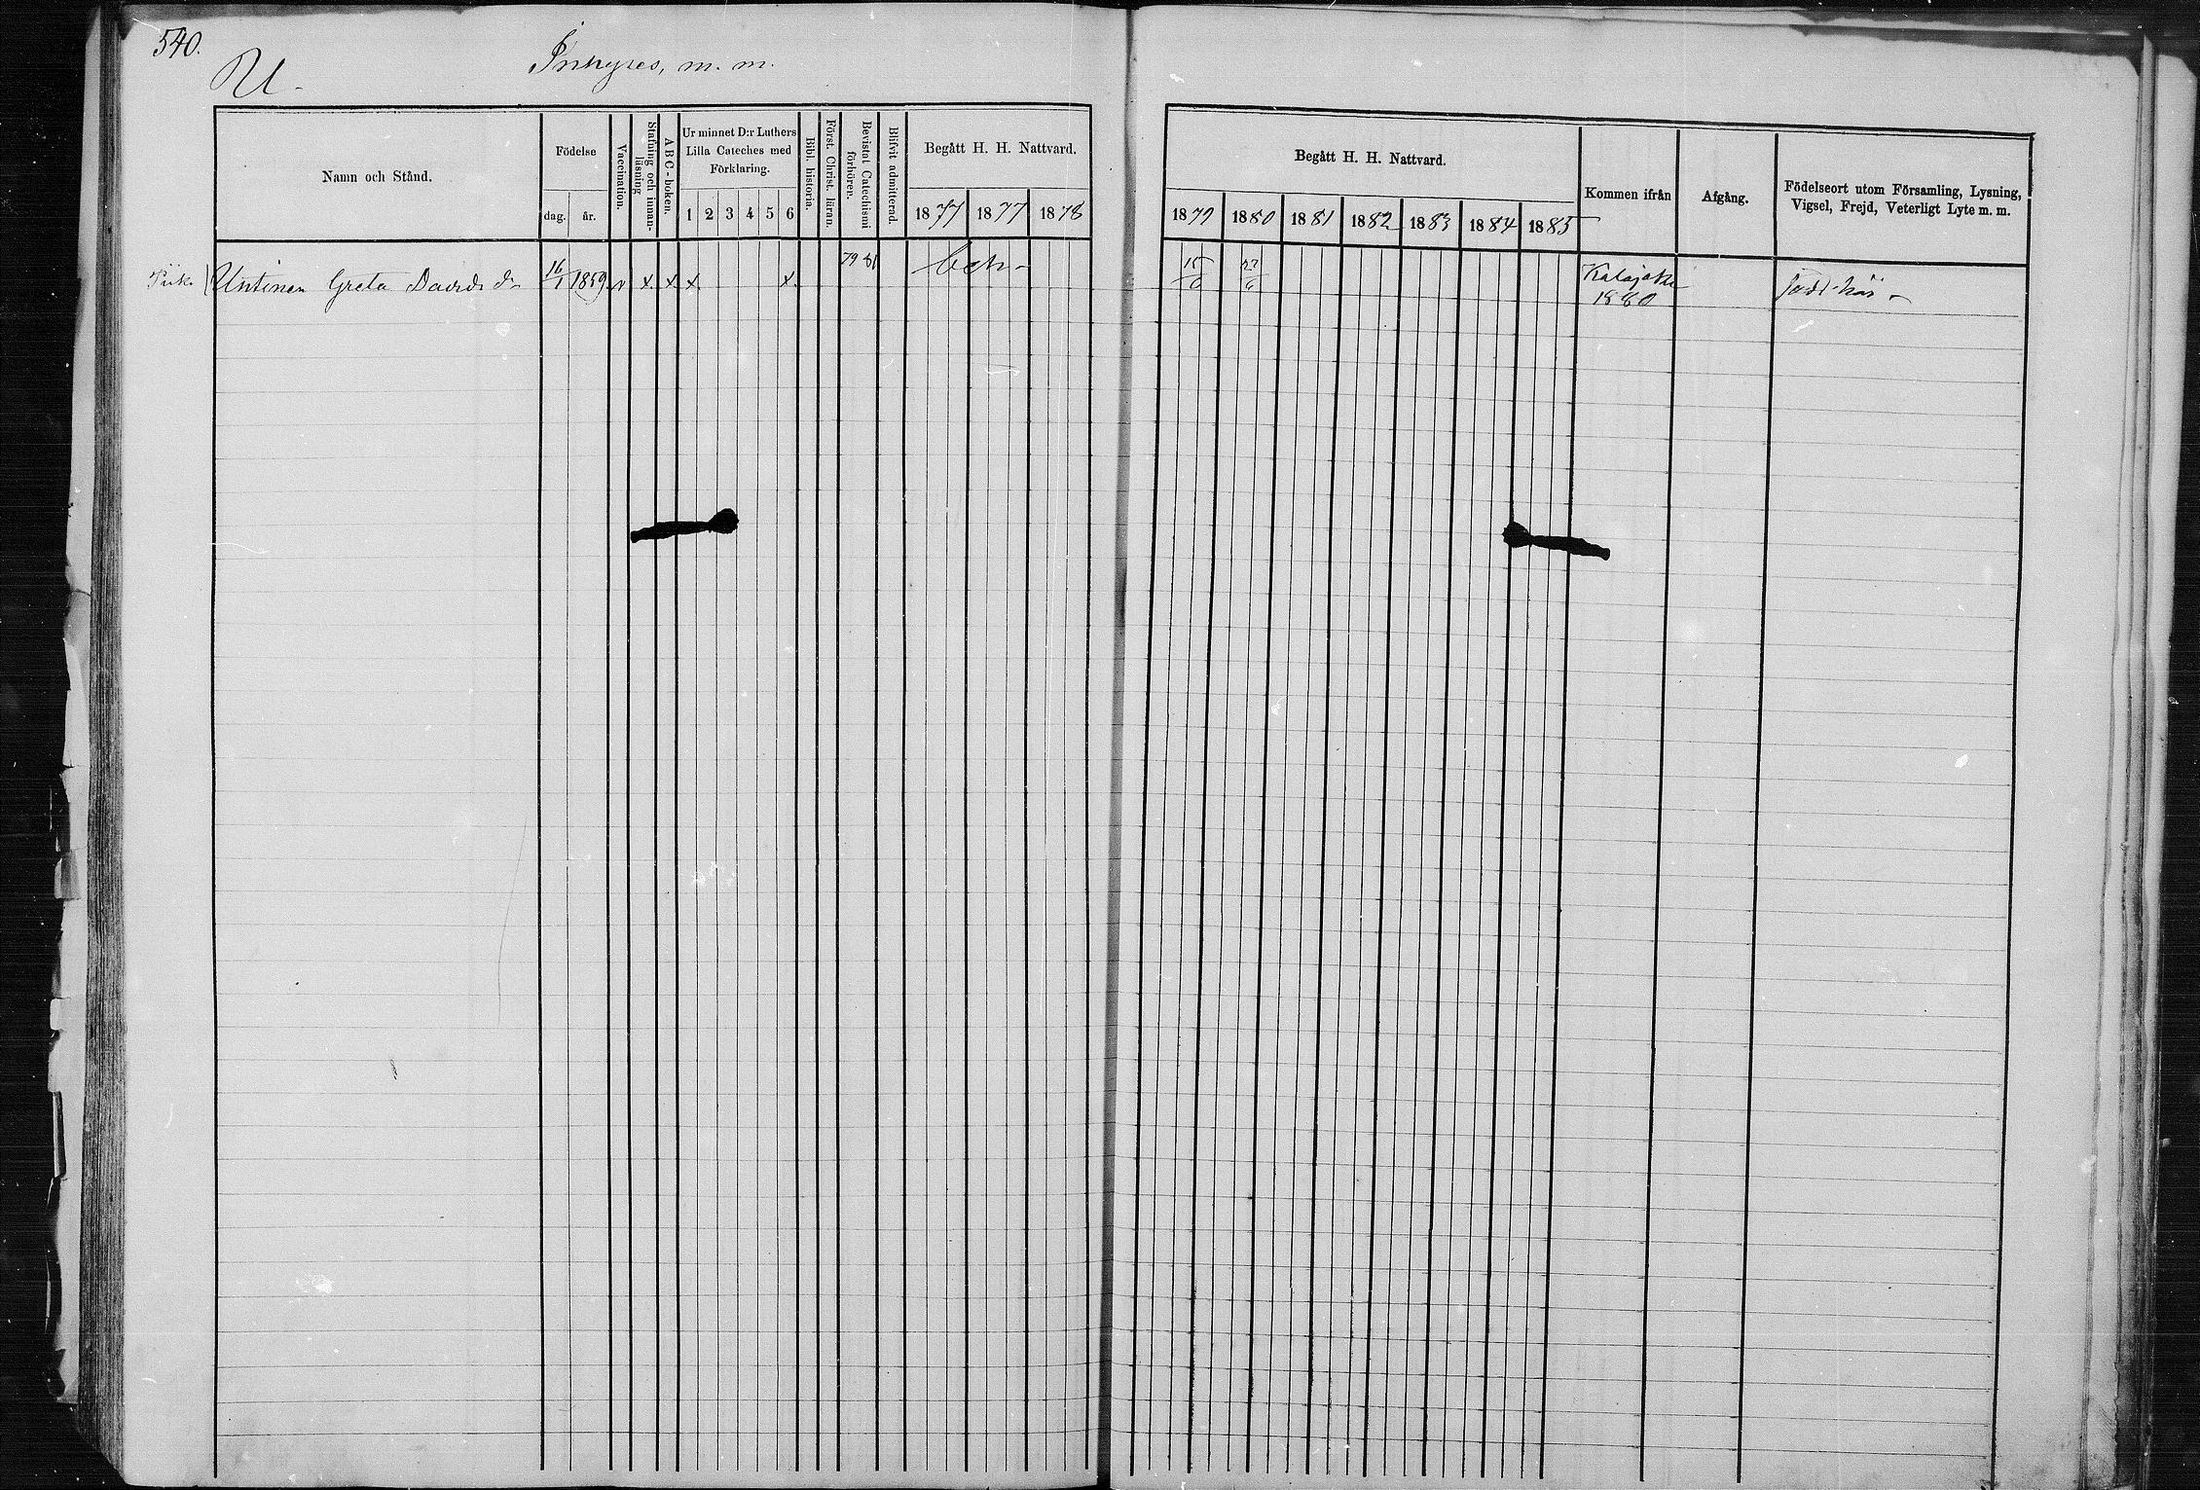 540.
U.
Inhyses, m. m.
Namn och Stånd.
Födelse
dag.
år.
Vaccination.
Stafning och innan-
läsning
ABC-boken.
Ur minnet D:r Luthers
Lilla Cateches med
Förklaring.
1 2 3 4 5 6
Bibl. historia.
Först. Christ. läran.
Bevistat Catechismi
förhören.
Blifvit admitterad.
Begått H. H. Nattvard.
1877 1877 1878
Begått H. H. Nattvard.
1879 1880 1881 1882 1883 1884 1885
Kommen ifrån
Afgång.
Födelseort utom Församling, Lysning,
Vigsel, Frejd, Veterligt Lyte m. m.
Untinen Greta Davids dr 16/1 1859 v x x x x 79 81 15/6 27/6
Kalajoki
1880
född här